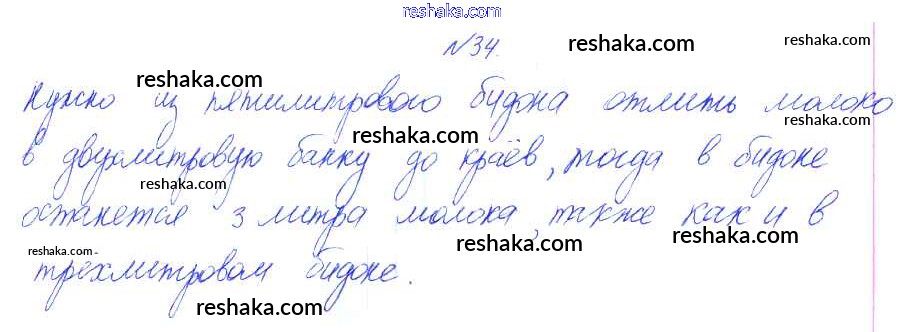 reshaka.com
№34. reshaka.com reshaka.com
reshaka.com
Нужно из пятилитрового бидона отлить молоко
reshaka.com reshaka.com
в двухлитровую банку до краёв, тогда в бидоне
reshaka.com reshaka.com
останется 3 литра молока, также как и в
reshaka.com reshaka.com reshaka.com
трёхлитровом бидоне.
reshaka.com reshaka.com